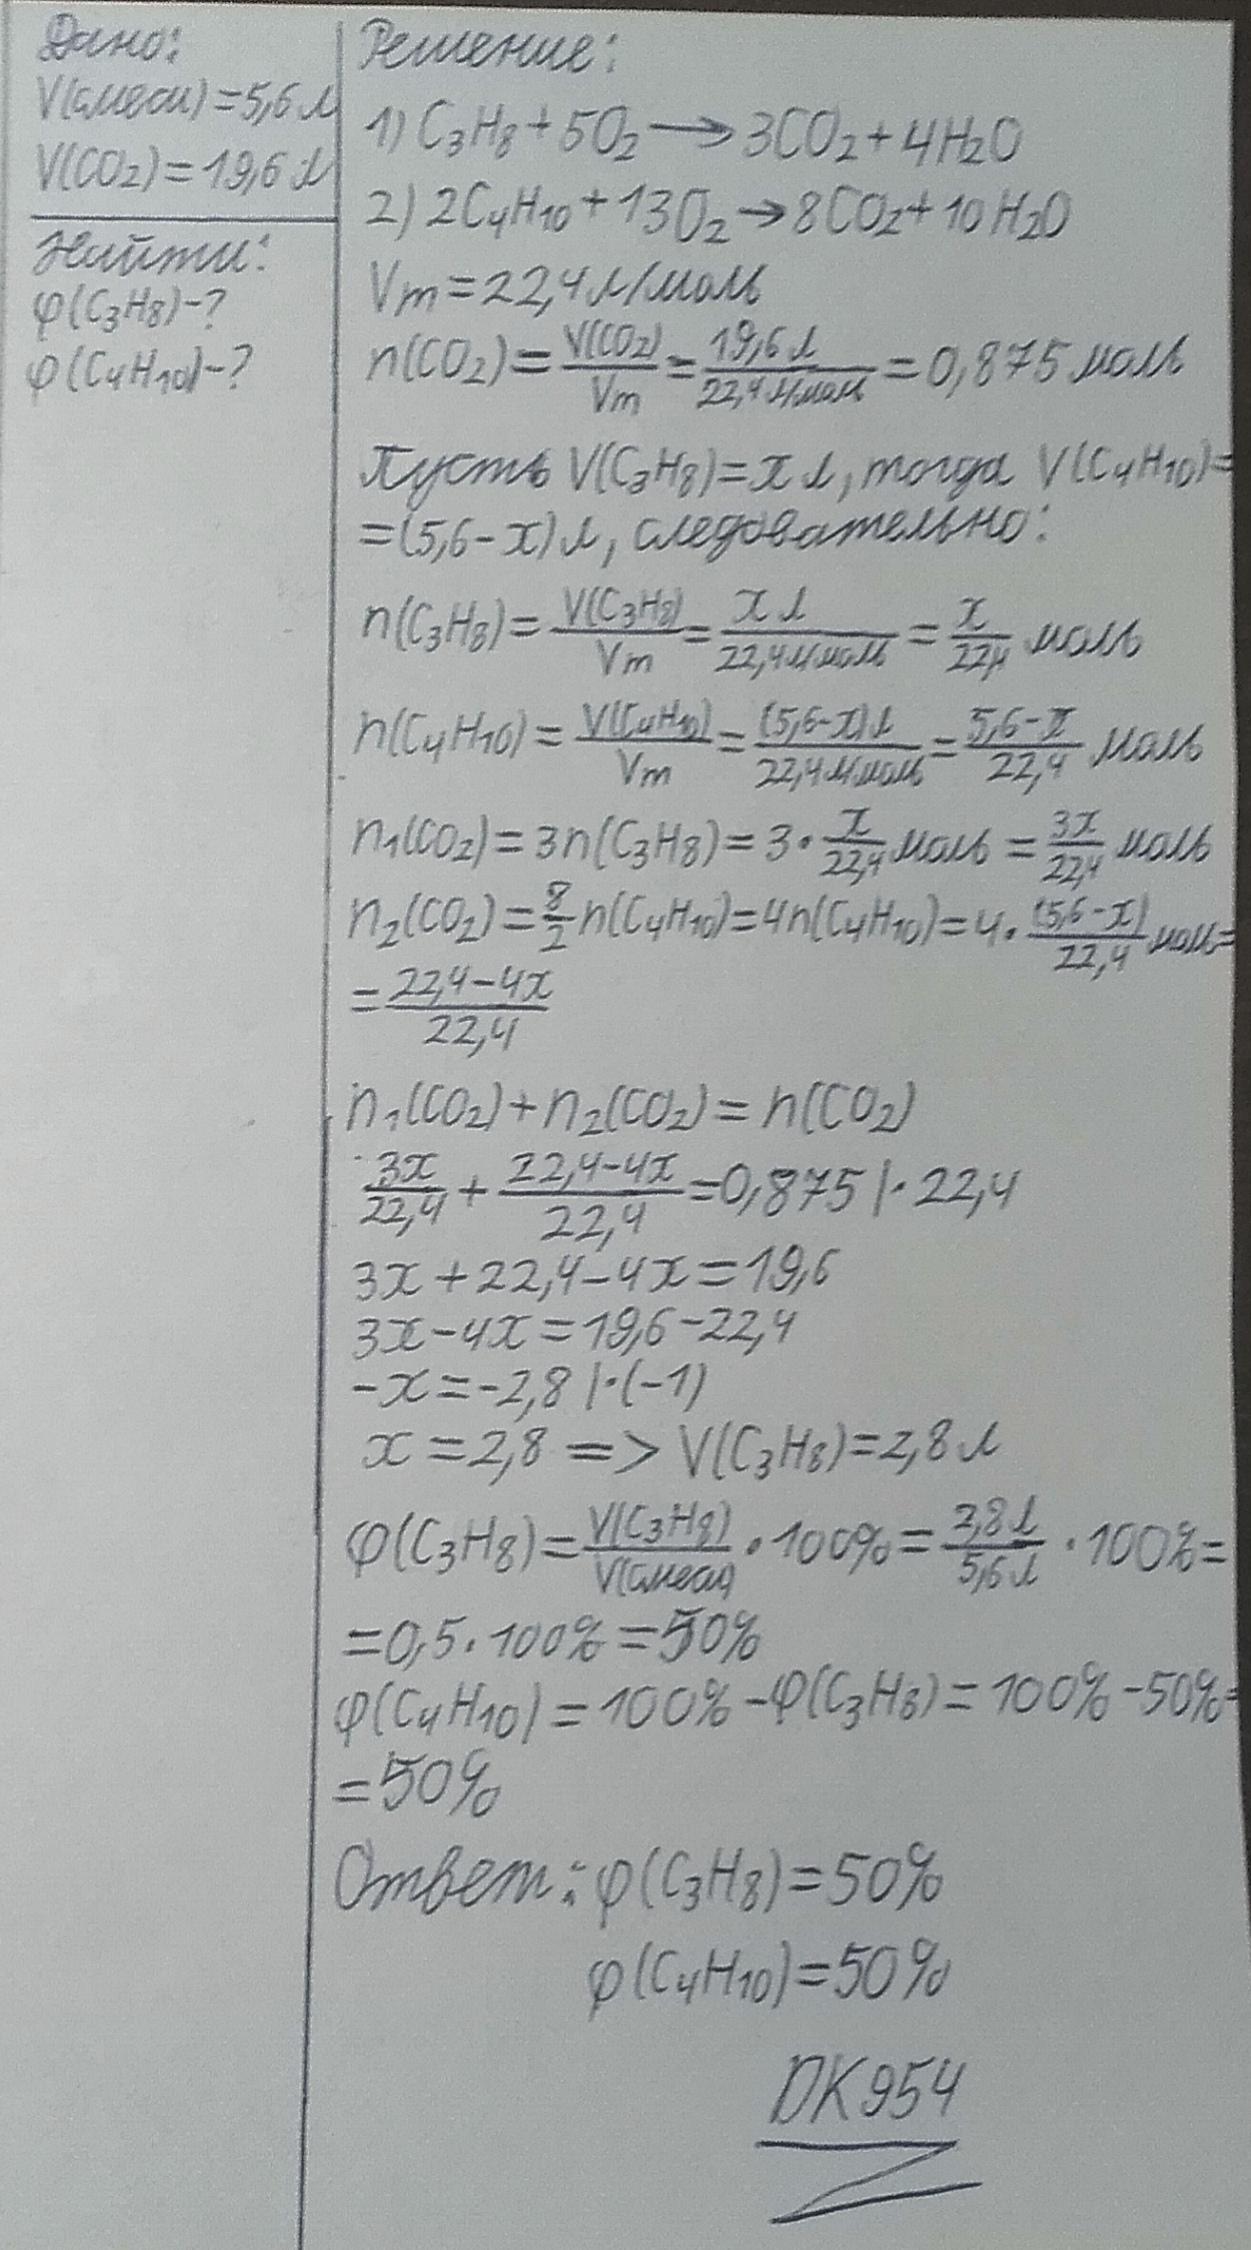 Дано:
V(смеси)=5,6 л
V(CO₂)=19,6 л
Найти:
φ(C₃H₈)-?
φ(C₄H₁₀)-?
Решение:
1) C₃H₈+5O₂→3CO₂+4H₂O
2) 2C₄H₁₀+13O₂→8CO₂+10H₂O
Vm=22,4 л/моль
n(CO₂)=V(CO₂)/Vm=19,6 л/22,4 л/моль=0,875 моль
Пусть V(C₃H₈)=x л, тогда V(C₄H₁₀)=
=(5,6-x) л, следовательно:
n(C₃H₈)=V(C₃H₈)/Vm=x л/22,4 л/моль=x/22,4 моль
n(C₄H₁₀)=V(C₄H₁₀)/Vm=(5,6-x) л/22,4 л/моль=5,6-x/22,4 моль
n₁(CO₂)=3n(C₃H₈)=3·x/22,4 моль=3x/22,4 моль
n₂(CO₂)=8/2n(C₄H₁₀)=4n(C₄H₁₀)=4·(5,6-x)/22,4 моль=
=22,4-4x/22,4
n₁(CO₂)+n₂(CO₂)=n(CO₂)
3x/22,4+22,4-4x/22,4=0,875 |·22,4
3x+22,4-4x=19,6
3x-4x=19,6-22,4
-x=-2,8 |·(-1)
x=2,8 => V(C₃H₈)=2,8 л
φ(C₃H₈)=V(C₃H₈)/V(смеси)·100%=2,8 л/5,6 л·100%=
=0,5·100%=50%
φ(C₄H₁₀)=100%-φ(C₃H₈)=100%-50%=
=50%
Ответ: φ(C₃H₈)=50%
φ(C₄H₁₀)=50%
DK954